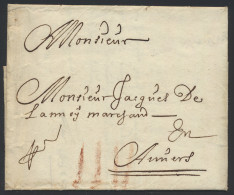 Monsieur
Monsieur Jacques De
Lannoy marchand
En
Anvers